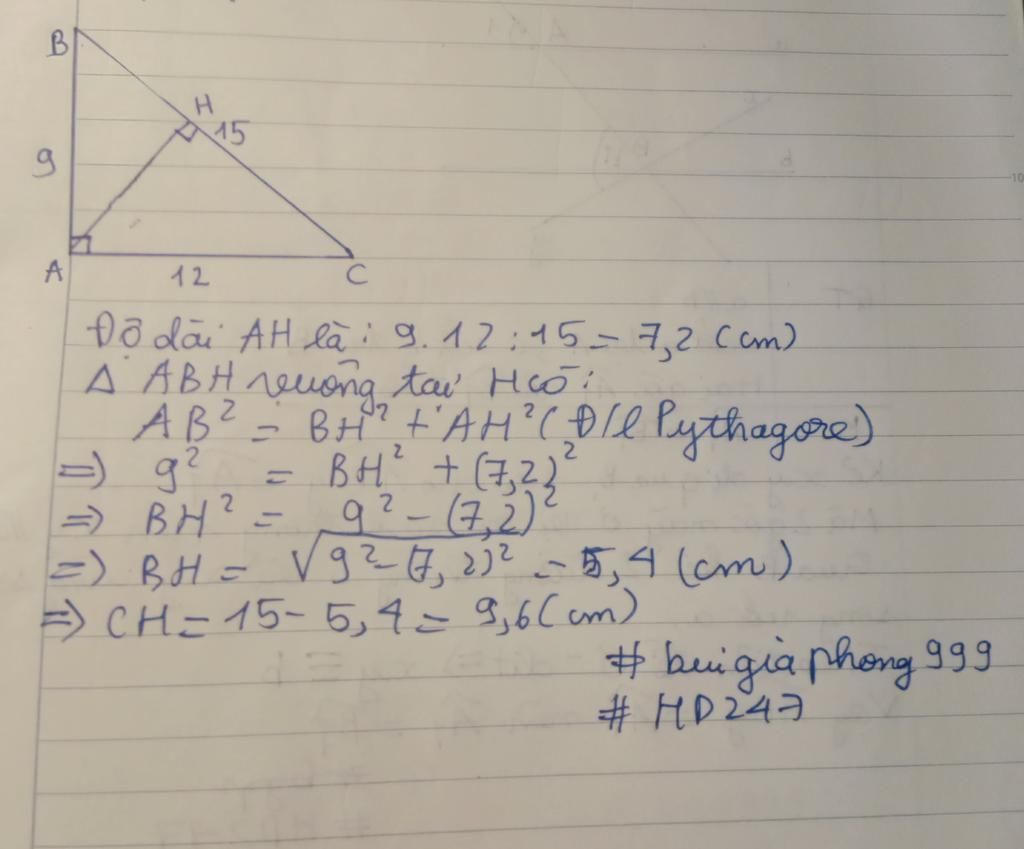 B
H
15
9
A
12
C
Độ dài AH là: 9.12:15 = 7,2 (cm)
Δ ABH vuông tại H có:
AB² = BH² + AH² (Đ/l Pythagore)
=> 9² = BH² + (7,2)²
=> BH² = 9² - (7,2)²
=> BH = √9² - (7,2)² = 5,4 (cm)
=> CH = 15 - 5,4 = 9,6 (cm)
# buigiaphong999
# HD247